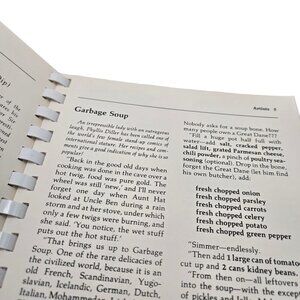 Artists 5
Garbage Soup
An irrepressible lady with an outrageous
laugh, Phyllis Diller has been called one of
the world's few female comics of an
international stature. Her recipes and com-
ments give a good indication of why she is so
popular!
"Back in the good old days when
cooking was done in the cave over a
hot twig, food was pure gold. The
wheel was still 'new,' and I'll never
forget one day when Aunt Hat
looked at Uncle Ben during a rain
storm and at her stove, under which
only a few twigs were burning, and
she said, 'You notice, the wet stuff
puts out the hot stuff.'
"That brings us up to Garbage
Soup. One of the rare delicacies of
the civilized world, because it is an
old French, Scandinavian, Yugo-
slavian, Icelandic, German, Dutch,
Italian, Mohammedan
Nobody asks for a soup bone. How
many people own a Great Dane???
"Fill a huge pot half full with
water—add salt, cracked pepper,
salad lift, grated Parmesan cheese,
chili powder, a pinch of poultry seaso-
ning (optional). Drop in the bone
forget the Great Dane (let him find
his own butcher), add:
fresh chopped onion
fresh chopped parsley
fresh chopped carrots
fresh chopped celery
fresh chopped potato
fresh chopped green pepper
"Simmer—endlessly.
"Then add 1 large can of tomatoes
cut up and 2 cans kidney beans,
"From
into the soup—everything